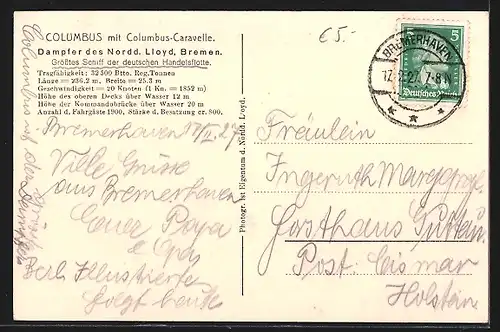 COLUMBUS mit Columbus-Caravelle.
Dampfer des Nordd. Lloyd, Bremen.
Größtes Schiff der deutschen Handelsflotte.
Tragfähigkeit: 32 500 Btto. Reg. Tonnen
Länge = 236.2 m, Breite = 25.3 m
Geschwindigkeit = 20 Knoten (1 Kn. = 1852 m)
Höhe des oberen Decks über Wasser 12 m
Höhe der Kommandobrücke über Wasser 20 m
Anzahl d. Fahrgäste 1900, Stärke d. Besatzung cr. 800.
Bremerhaven 17/II. 27
Viele Grüsse
aus Bremerhaven
Euer Papa
Opa
Berl. Illustrierte
folgt heute
Columbus auf der
Photogr. ist Eigentum d. Nordd. Lloyd.
€5.-
5
Deutsches Reich
BREMERHAVEN
17. 2. 27. 7-8 N
Fräulein
Ingeruth
Forsthaus
Post. Cismar
Holstein